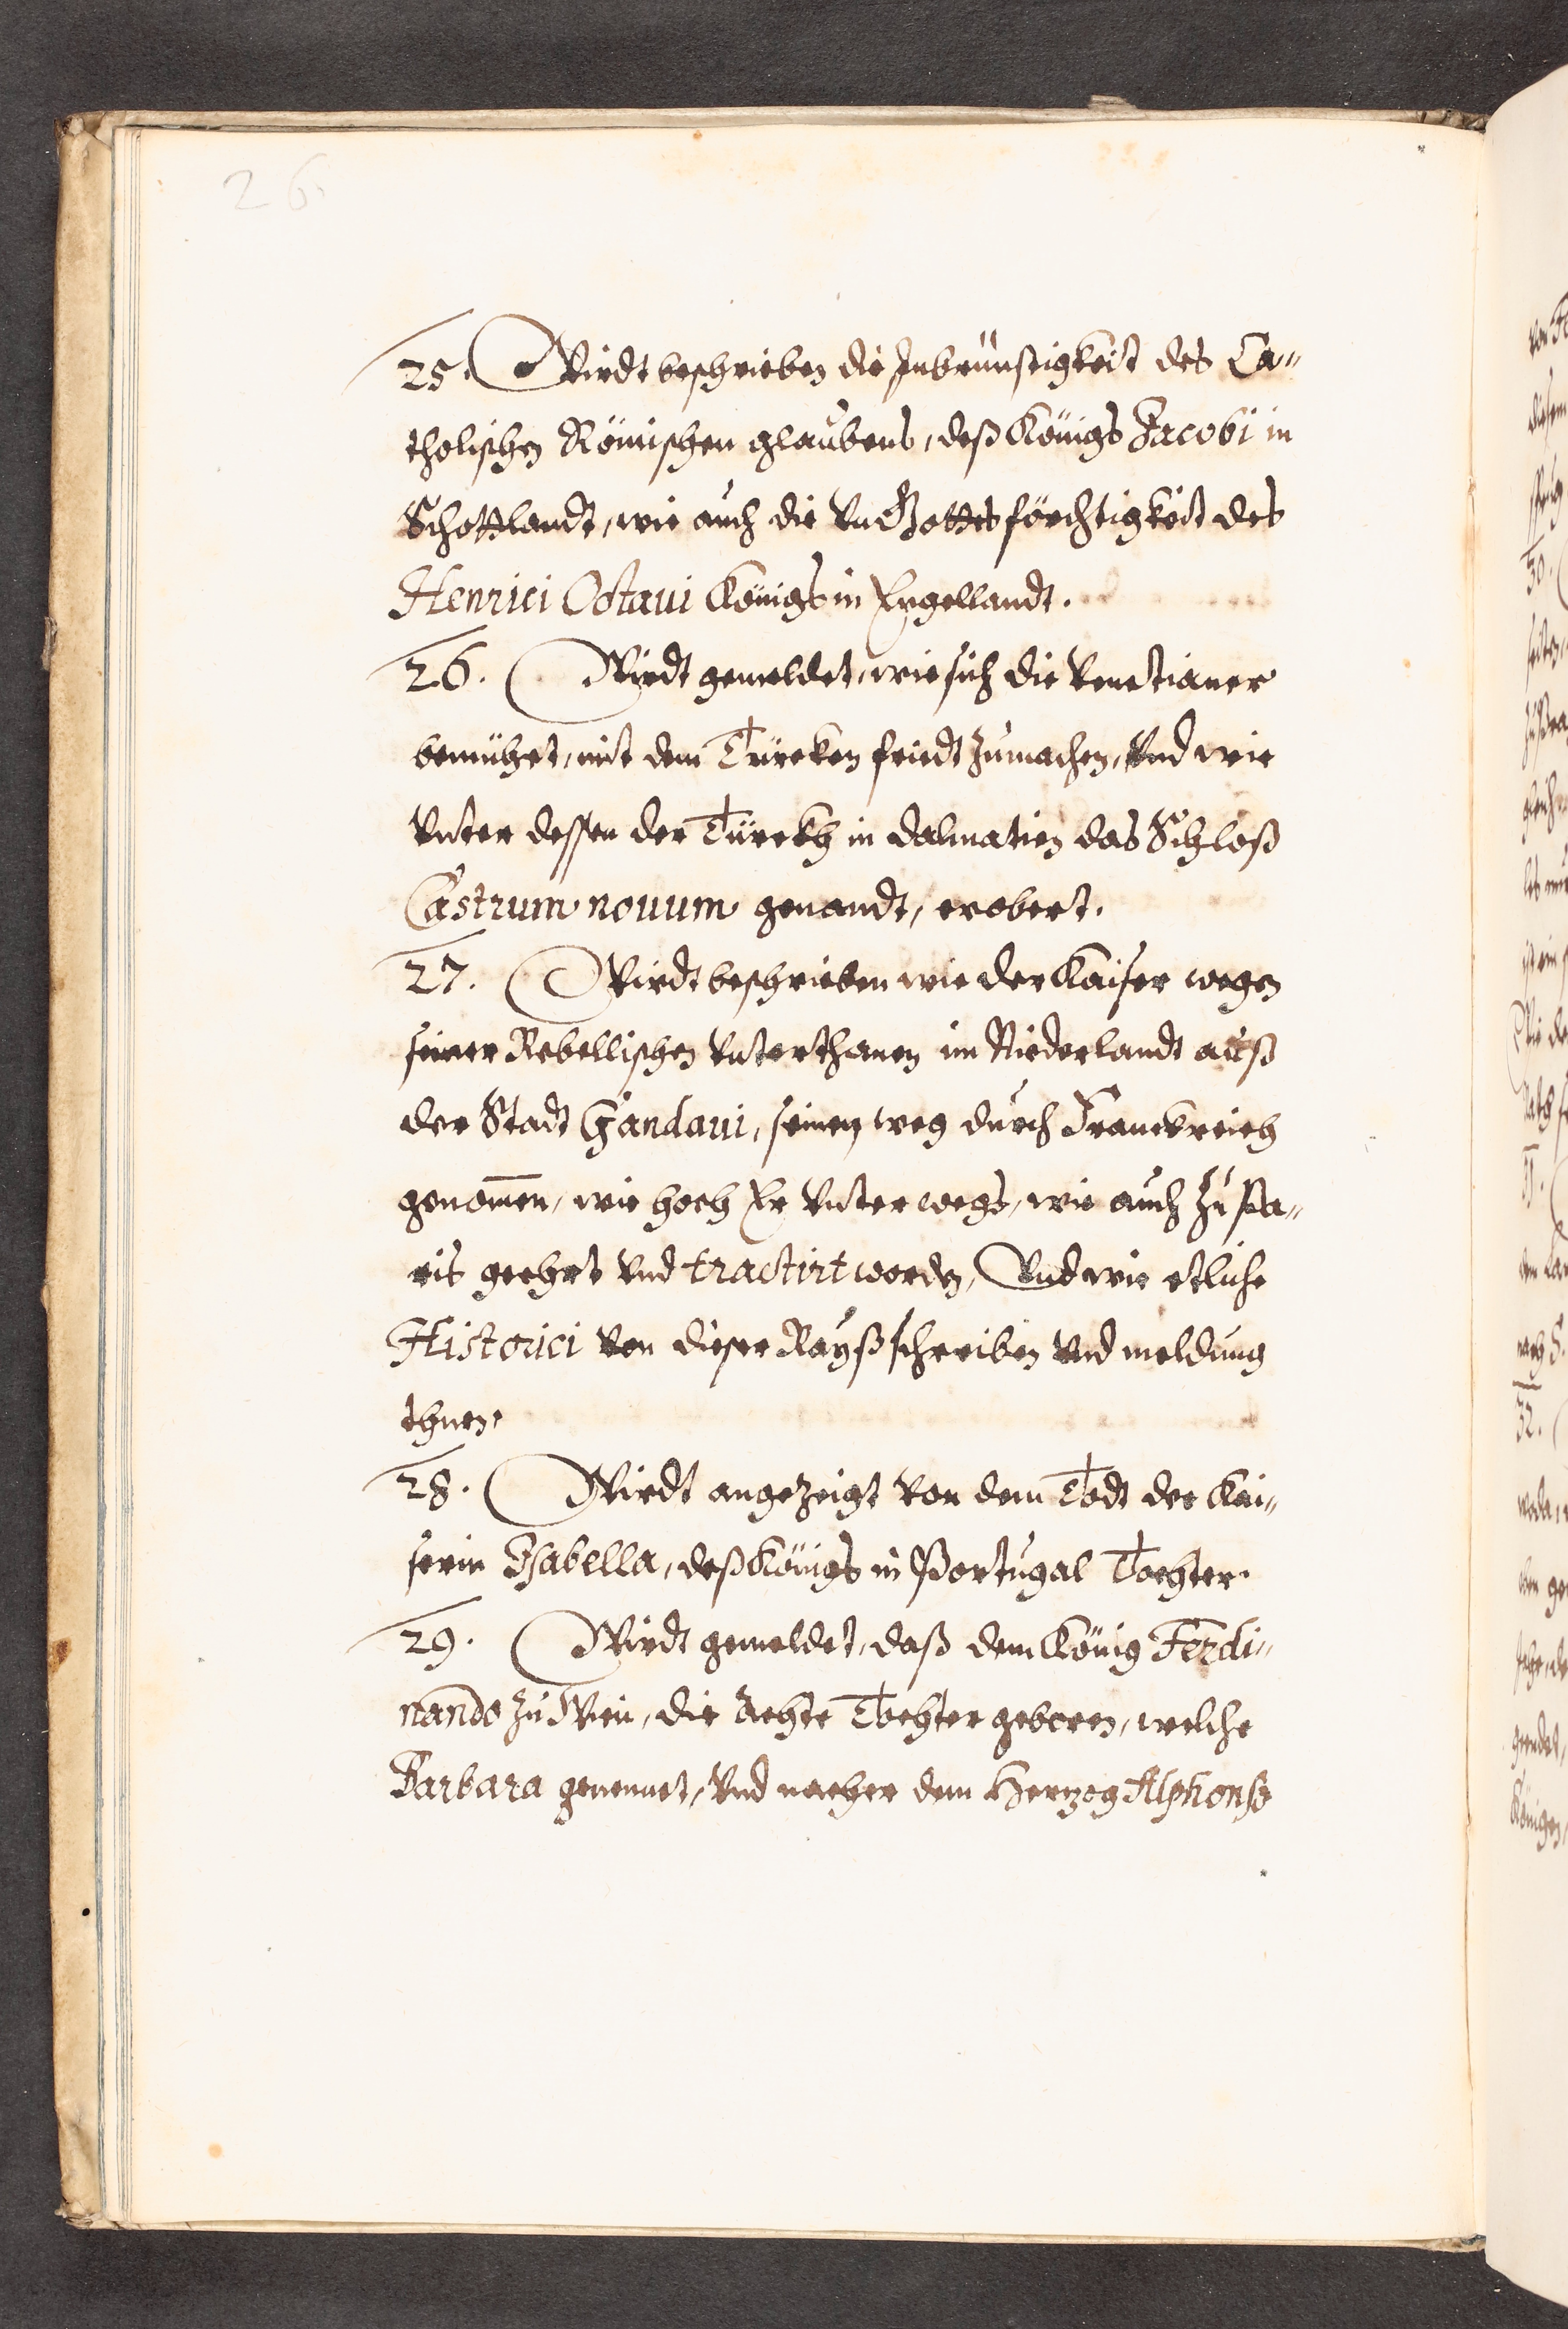 26.
25. Wirdt beschrieben die Inbrünstigkeit des Ca-
tholischen Römischen glaubens, deß Königs Jacobi in
Schottlandt, wie auch die Vn Gottesförchtigkeit des
Henrici Octaui Königs in Engellandt.
26. Wirdt gemeldet, wie sich die Venetianer
bemühet, mit dem Türcken friedt zumachen, Vnd wie
Vnter dessen der Türckh in dalmatien das Schloß
Castrum nouum genandt, erobert.
27. Wirdt beschrieben wie der Kaiser wegen
seiner Rebellischen Vnterthanen im Niederlandt auß
der Stadt Gandaui, seinen weg durch Franckreich
genommen, wie hoch Er Vnterwegs, wie auch zu Pa-
ris geehrt Vnd tractirt worden, Vnd wie etliche
Historici Von dieser Rayß schreiben Vnd meldung
thuen.
28. Wirdt angezeigt Von dem Todt der Kai-
serin Isabella, deß Königs in Portugal Tochter.
29. Wirdt gemeldet, daß dem König Ferdi-
nando zu Wien, die Achte Tochter geboren, welche
Barbara genennet, Vnd nacher dem Hertzog Alphonso